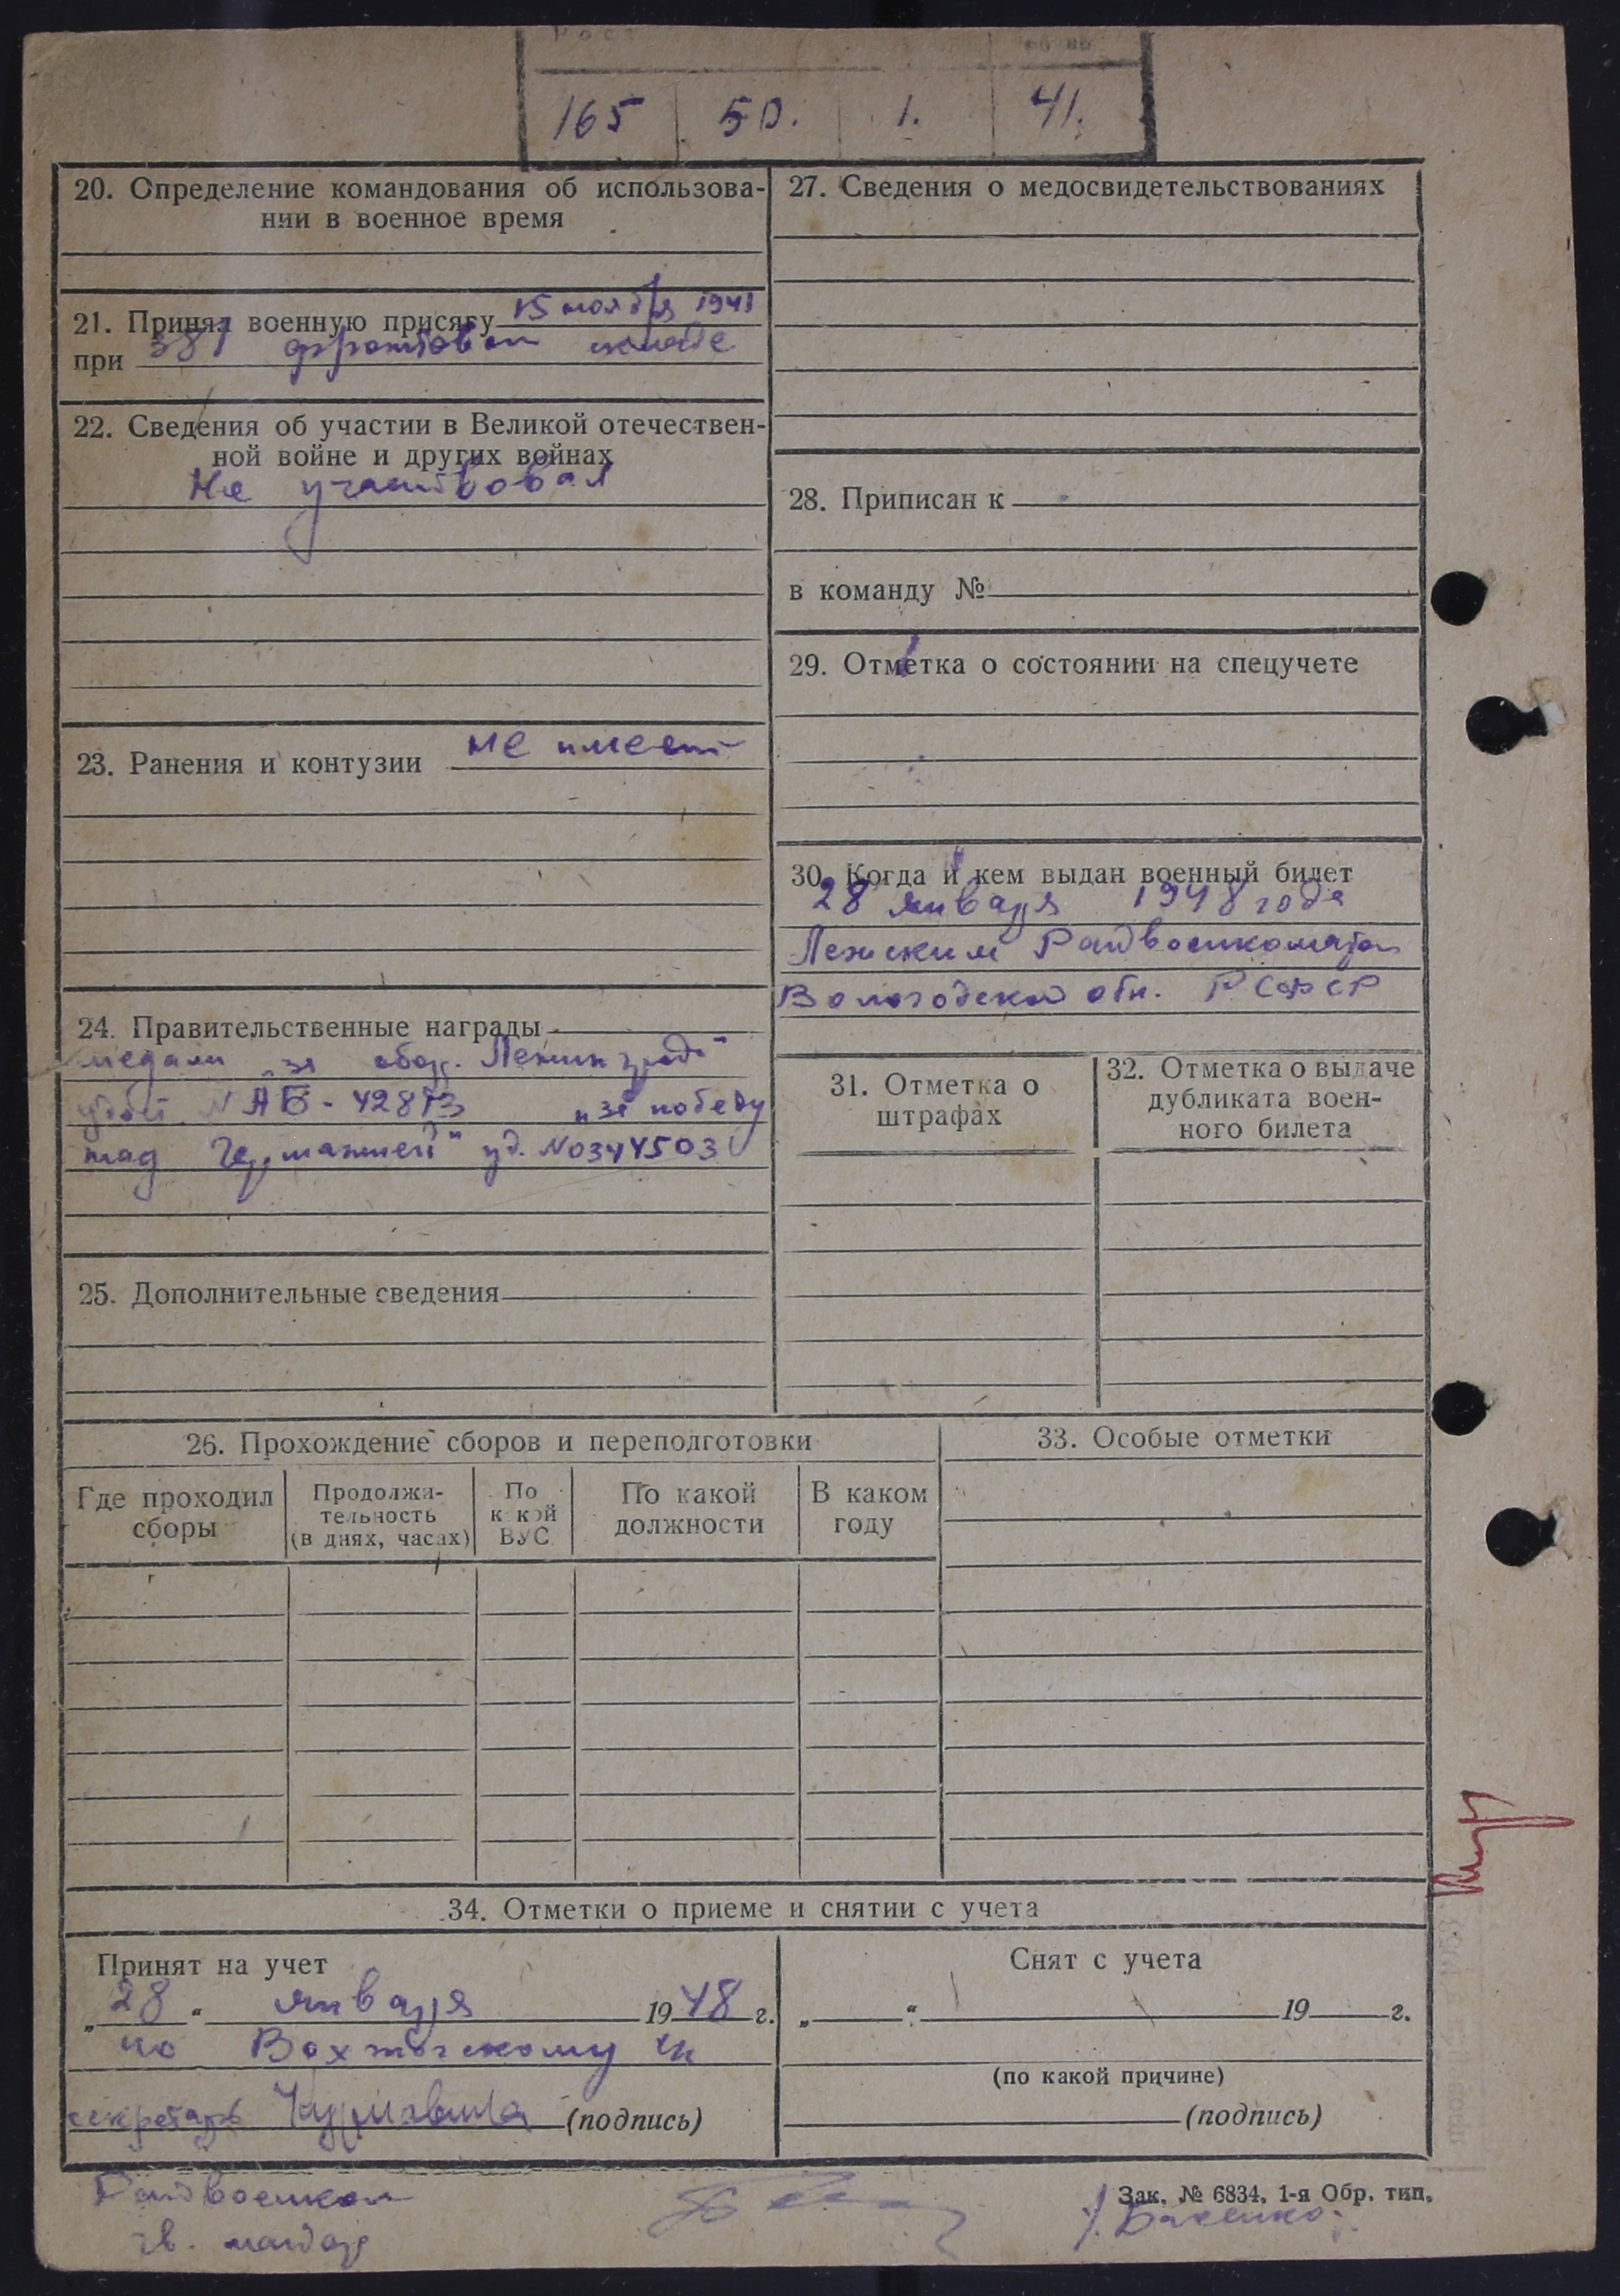 Рост
165 50. 1. 41.
20. Определение командования об использова-
нии в военное время
21. Принял военную присягу 15 ноября 1941
при 387 фронтовом складе
22. Сведения об участии в Великой отечествен-
ной войне и других войнах
Не участвовал
23. Ранения и контузии не имеет
24. Правительственные награды
медали „за обор. Ленинграда"
удост. N АБ-42873 „за победу
над Германией" уд. N0344503
25. Дополнительные сведения
27. Сведения о медосвидетельствованиях
28. Приписан к
в команду №
29. Отметка о состоянии на спецучете
30. Когда и кем выдан военный билет
28 января 1948 года
Лежским Райвоенкоматом
Вологодской обл. РСФСР
31. Отметка о
штрафах
32. Отметка о выдаче
дубликата воен-
ного билета
26. Прохождение сборов и переподготовки
Где проходил
сборы
Продолжи-
тельность
(в днях, часах)
По
какой
ВУС
По какой
должности
В каком
году
33. Особые отметки
34. Отметки о приеме и снятии с учета
Принят на учет
„28" января 1948 г.
по Вохтогскому
секретарь (подпись)
Снят с учета
„ " 19 г.
(по какой причине)
(подпись)
Зак. № 6834. 1-я Обр. тип.
Райвоенком
гв. майор